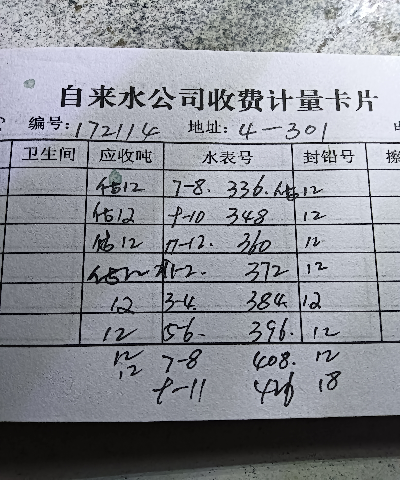 自来水公司收费计量卡片
编号:172114 地址:4-301
卫生间 应收吨 水表号 封铅号
估12 7-8. 336. 估12
估12 9-10 348 12
估12 11-12. 360 12
1-2. 372 12
12 3-4. 384. 12
12 5-6. 396. 12
12 7-8 408. 12
12 9-11 426 18